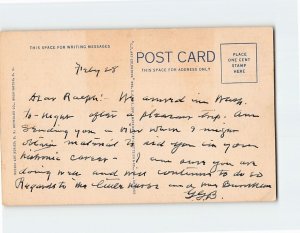 THIS SPACE FOR WRITING MESSAGES
POST CARD
THIS SPACE FOR ADDRESS ONLY
PLACE
ONE CENT
STAMP
HERE
Feby 28
Dear Ralph: We arrived in Wash.
to-night after a pleasant trip. Am
sending you a view where I might
obtain material to aid you in your
historic career - I am sure you are
doing well and will continue to do so
Regards to the and Mrs
G.G.B.